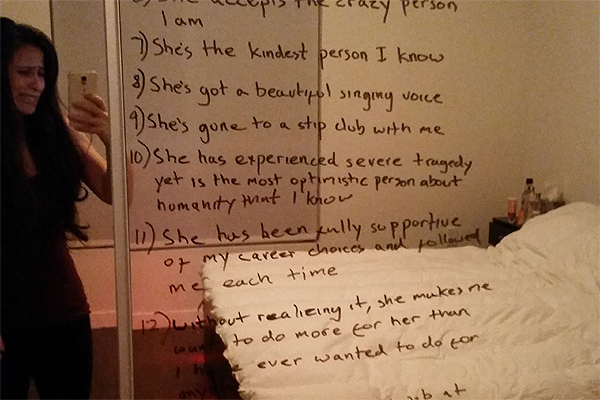 She accepts the crazy person
I am
7) She's the kindest person I know
8) She's got a beautiful singing voice
9) She's gone to a stip club with me
10) She has experienced severe tragedy
yet is the most optimistic person about
humanity that I know
11) She has been fully supportive
of my career choices and followed
me each time
12) Without realizing it, she makes me
to do more for her than
I ever wanted to do for